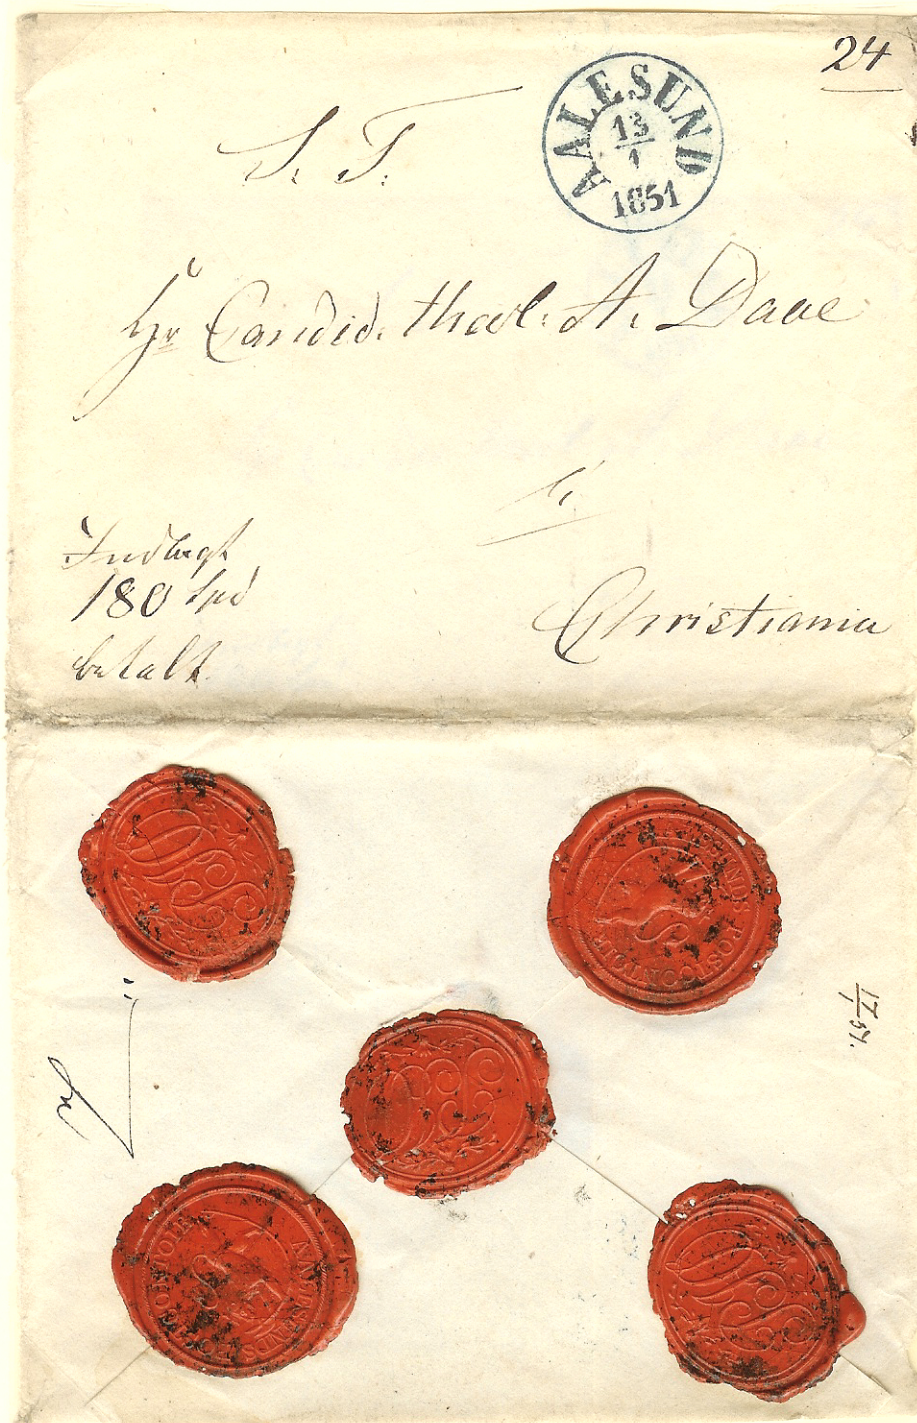 24
S. T.
AALESUND
13
1
1851
Hr Candid. theol. A. Daae
i
Christiania
Indlagt
180 Spd
betalt
POSTCONTOIR
17
1 51.